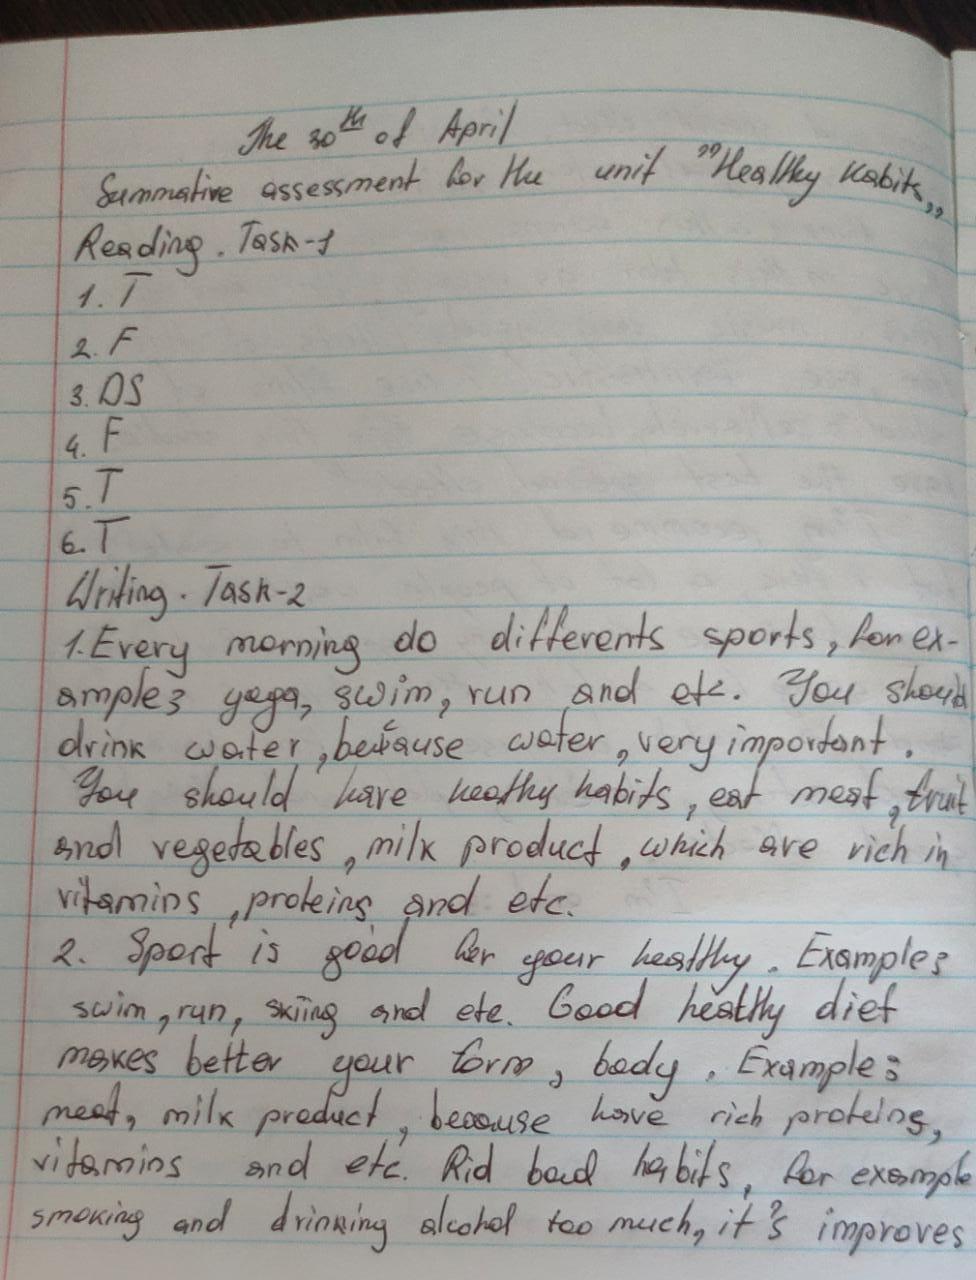 The 30th of April
Summative assessment for the unit "Healthy Habits,,
Reading. Task-1
1. T
2. F
3. DS
4. F
5. T
6. T
Writing. Task-2
1. Every morning do differents sports, for ex-
ample: yaga, swim, run and etc. You should
drink water, because water, very important.
You should have heathy habits, eat meat, fruit
and vegetables, milk product, which are rich in
vitamins, proteins and etc.
2. Sport is good for your healthy. Example:
swim, run, skiing and etc. Good heathly diet
makes better your form, body. Example:
meat, milk product, because have rich proteins,
vitamins and etc. Rid bad habits, for example
smoking and drinking alcohol too much, it's improves